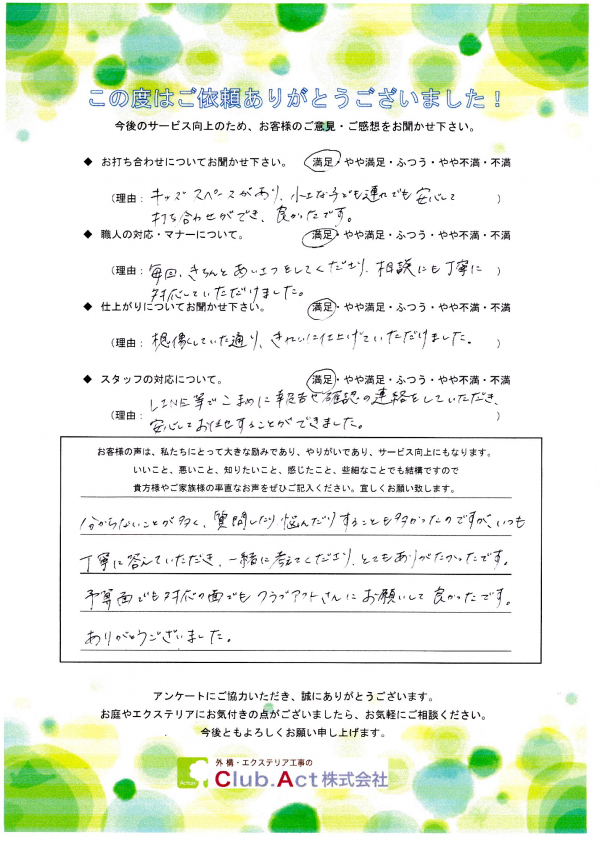 この度はご依頼ありがとうございました！
今後のサービス向上のため、お客様のご意見・ご感想をお聞かせ下さい。
◆ お打ち合わせについてお聞かせ下さい。 満足・やや満足・ふつう・やや不満・不満
（理由： キッズスペースがあり、小さな子ども連れでも安心して ）
打ち合わせができ、良かったです。
◆ 職人の対応・マナーについて。 満足・やや満足・ふつう・やや不満・不満
（理由： 毎回、きちんとあいさつをしてくださり、相談にも丁寧に ）
対応していただけました。
◆ 仕上がりについてお聞かせ下さい。 満足・やや満足・ふつう・やや不満・不満
（理由： 想像していた通り、きれいに仕上げていただけました。 ）
◆ スタッフの対応について。 満足・やや満足・ふつう・やや不満・不満
LINE等でこまめに報告や確認の連絡をしていただき、
（理由： 安心してお任せすることができました。 ）
お客様の声は、私たちにとって大きな励みであり、やりがいであり、サービス向上にもなります。
いいこと、悪いこと、知りたいこと、感じたこと、些細なことでも結構ですので
貴方様やご家族様の率直なお声をぜひご記入ください。宜しくお願い致します。
分からないことが多く、質問したり悩んだりすることも多かったのですが、いつも
丁寧に答えていただき、一緒に考えてくださり、とてもありがたかったです。
予算面でも対応の面でもクラブアクトさんにお願いして良かったです。
ありがとうございました。
アンケートにご協力いただき、誠にありがとうございます。
お庭やエクステリアにお気付きの点がございましたら、お気軽にご相談ください。
今後ともよろしくお願い申し上げます。
外構・エクステリア工事の
Club.Act株式会社